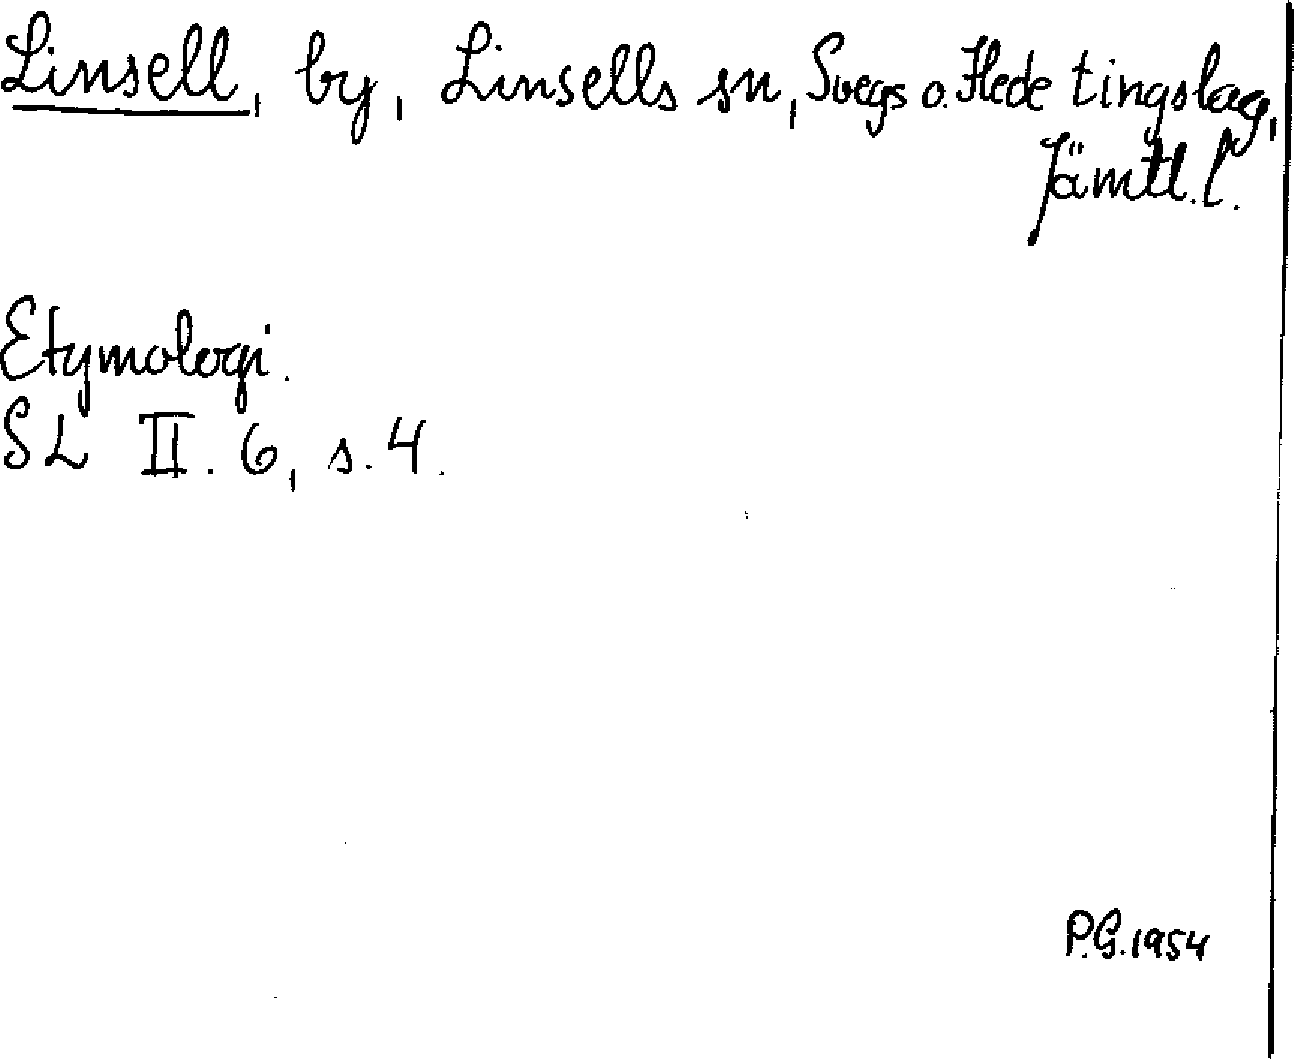 Linsell, by, Linsells sn, Svegs o. Hede tingslag,
Jämtl. l.
Etymologi.
SL II. 6, s. 4.
P.G. 1954